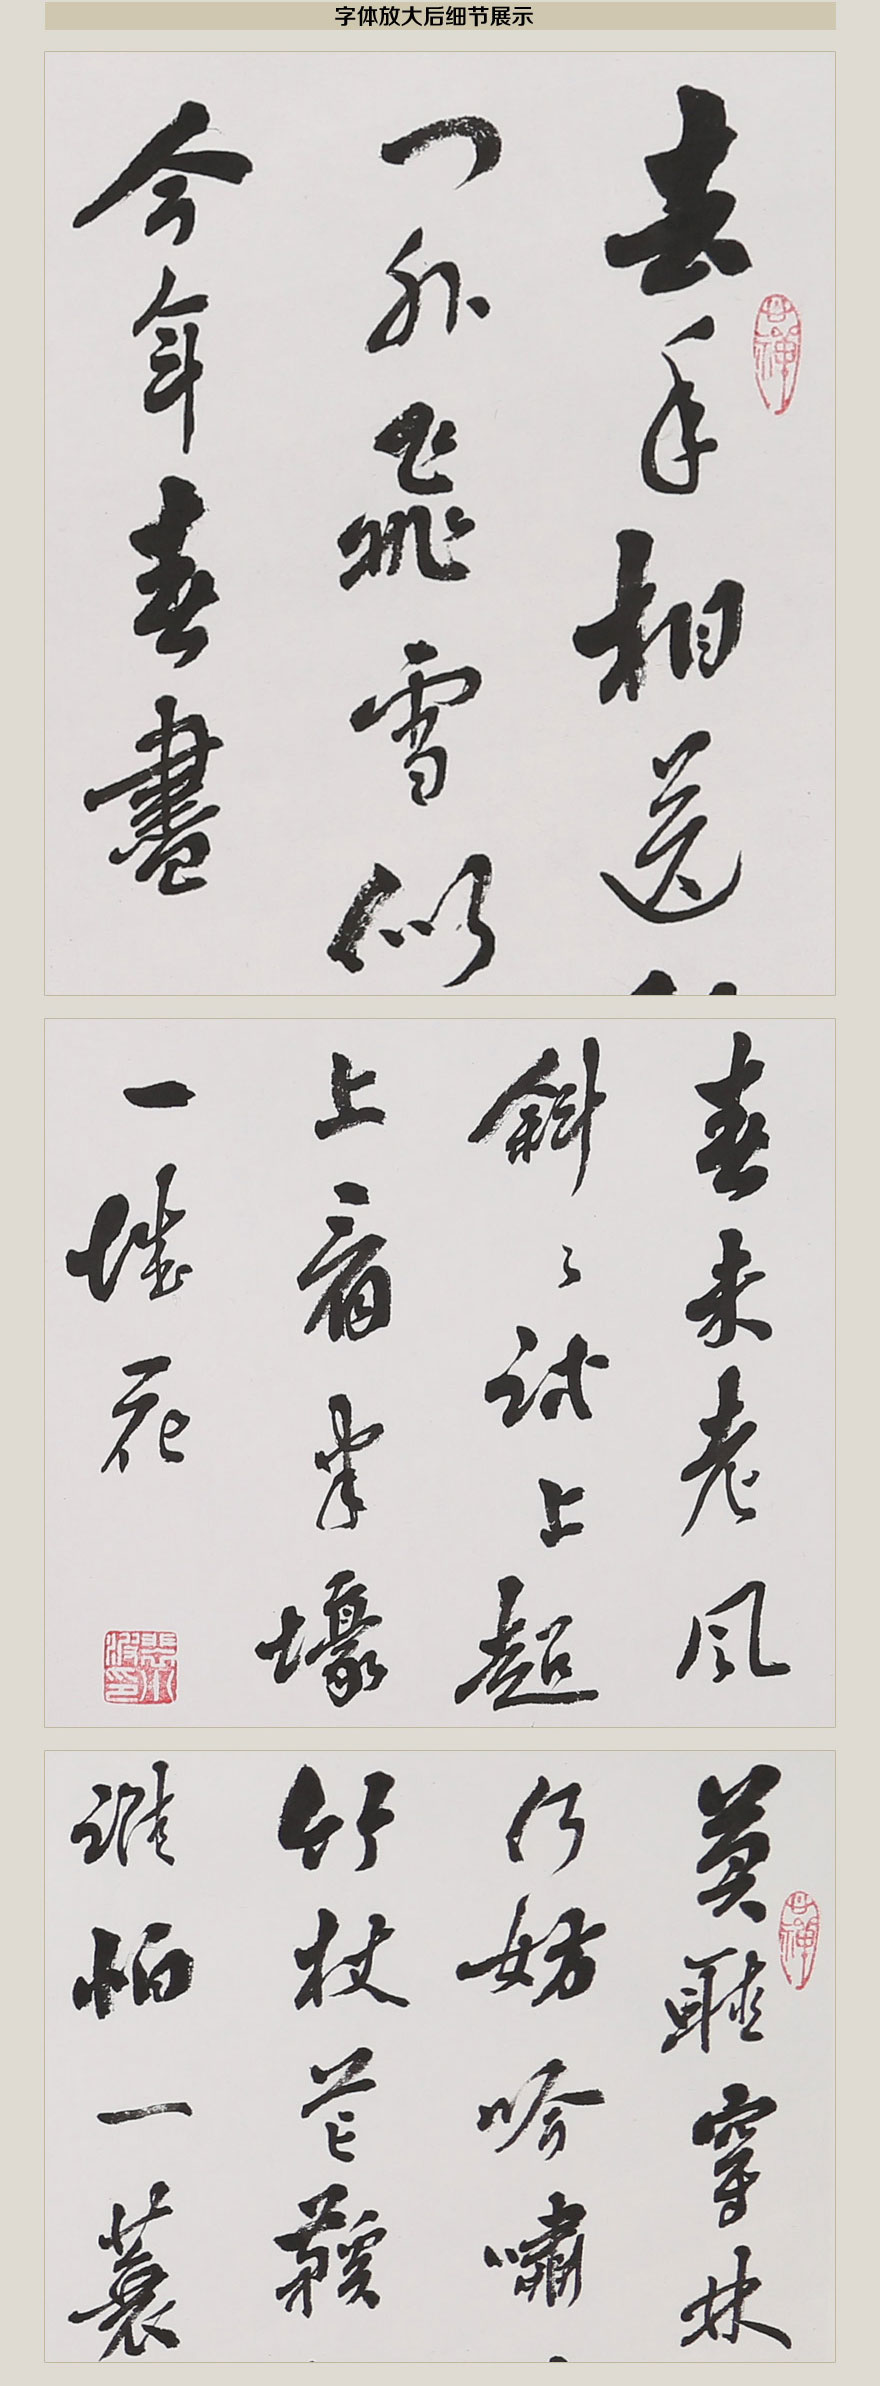 字体放大后细节展示
去年相送
门外飛雪似
今年春盡
春未老風
斜々试上超
上看半壕
一城花
莫聽穿林
何妨吟嘯
竹杖芒鞵
誰怕一蓑